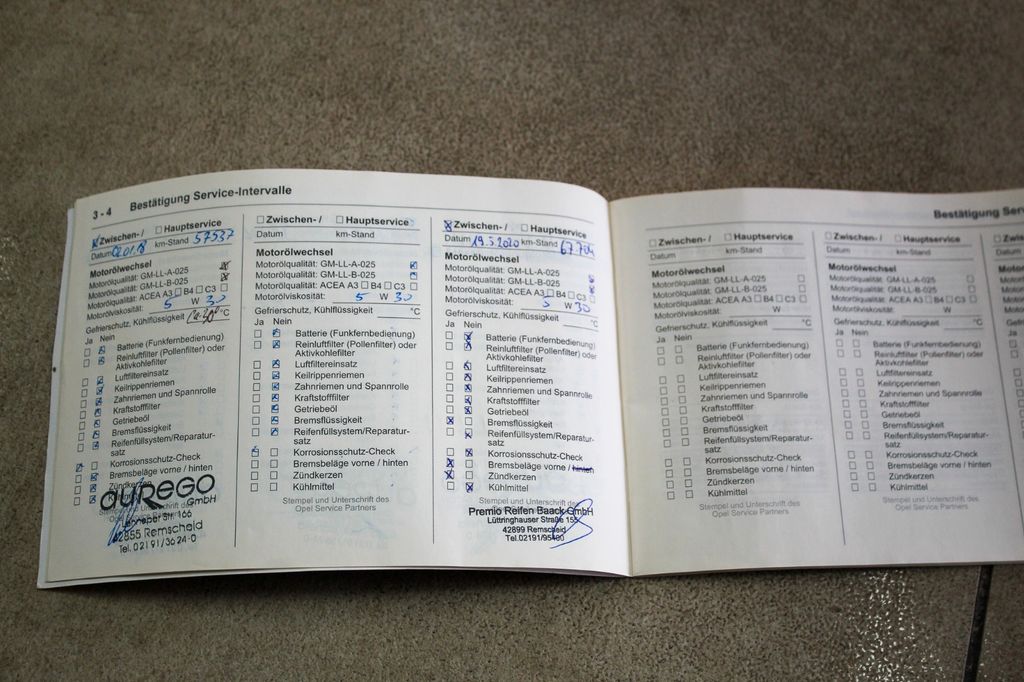 3 - 4 Bestätigung Service-Intervalle
Zwischen- / Hauptservice
Datum 02.01.18 km-Stand 57537
Motorölwechsel
Motorölqualität: GM-LL-A-025
Motorölqualität: GM-LL-B-025
Motorölqualität: ACEA A3 B4 C3
Motorölviskosität: 5 W 30
Gefrierschutz, Kühlflüssigkeit °C
Ja Nein
Batterie (Funkfernbedienung)
Reinluftfilter (Pollenfilter) oder
Aktivkohlefilter
Luftfiltereinsatz
Keilrippenriemen
Zahnriemen und Spannrolle
Kraftstofffilter
Getriebeöl
Bremsflüssigkeit
Reifenfüllsystem/Reparatur-
satz
Korrosionsschutz-Check
Bremsbeläge vorne / hinten
Zündkerzen
auREGO
GmbH
Str. 166
42855 Remscheid
Tel. 02191/3624-0
Zwischen- / Hauptservice
Datum km-Stand
Motorölwechsel
Motorölqualität: GM-LL-A-025
Motorölqualität: GM-LL-B-025
Motorölqualität: ACEA A3 B4 C3
Motorölviskosität: 5 W 30
Gefrierschutz, Kühlflüssigkeit °C
Ja Nein
Batterie (Funkfernbedienung)
Reinluftfilter (Pollenfilter) oder
Aktivkohlefilter
Luftfiltereinsatz
Keilrippenriemen
Zahnriemen und Spannrolle
Kraftstofffilter
Getriebeöl
Bremsflüssigkeit
Reifenfüllsystem/Reparatur-
satz
Korrosionsschutz-Check
Bremsbeläge vorne / hinten
Zündkerzen
Kühlmittel
Stempel und Unterschrift des
Opel Service Partners
Zwischen- / Hauptservice
Datum 19.5.2020 km-Stand 67704
Motorölwechsel
Motorölqualität: GM-LL-A-025
Motorölqualität: GM-LL-B-025
Motorölqualität: ACEA A3 B4 C3
Motorölviskosität: 5 W 30
Gefrierschutz, Kühlflüssigkeit °C
Ja Nein
Batterie (Funkfernbedienung)
Reinluftfilter (Pollenfilter) oder
Aktivkohlefilter
Luftfiltereinsatz
Keilrippenriemen
Zahnriemen und Spannrolle
Kraftstofffilter
Getriebeöl
Bremsflüssigkeit
Reifenfüllsystem/Reparatur-
satz
Korrosionsschutz-Check
Bremsbeläge vorne / hinten
Zündkerzen
Kühlmittel
Stempel und Unterschrift des
Premio Reifen Baack GmbH
Lüttringhauser Straße 155
42899 Remscheid
Tel.02191/95400
Bestätigung Ser
Zwischen- / Hauptservice
Datum km-Stand
Motorölwechsel
Motorölqualität: GM-LL-A-025
Motorölqualität: GM-LL-B-025
Motorölqualität: ACEA A3 B4 C3
Motorölviskosität: W
Gefrierschutz, Kühlflüssigkeit °C
Ja Nein
Batterie (Funkfernbedienung)
Reinluftfilter (Pollenfilter) oder
Aktivkohlefilter
Luftfiltereinsatz
Keilrippenriemen
Zahnriemen und Spannrolle
Kraftstofffilter
Getriebeöl
Bremsflüssigkeit
Reifenfüllsystem/Reparatur-
satz
Korrosionsschutz-Check
Bremsbeläge vorne / hinten
Zündkerzen
Kühlmittel
Stempel und Unterschrift des
Opel Service Partners
Zwischen- / Hauptservice
Datum km-Stand
Motorölwechsel
Motorölqualität: GM-LL-A-025
Motorölqualität: GM-LL-B-025
Motorölqualität: ACEA A3 B4 C3
Motorölviskosität: W
Gefrierschutz, Kühlflüssigkeit °C
Ja Nein
Batterie (Funkfernbedienung)
Reinluftfilter (Pollenfilter) oder
Aktivkohlefilter
Luftfiltereinsatz
Keilrippenriemen
Zahnriemen und Spannrolle
Kraftstofffilter
Getriebeöl
Bremsflüssigkeit
Reifenfüllsystem/Reparatur-
satz
Korrosionsschutz-Check
Bremsbeläge vorne / hinten
Zündkerzen
Kühlmittel
Stempel und Unterschrift des
Opel Service Partners